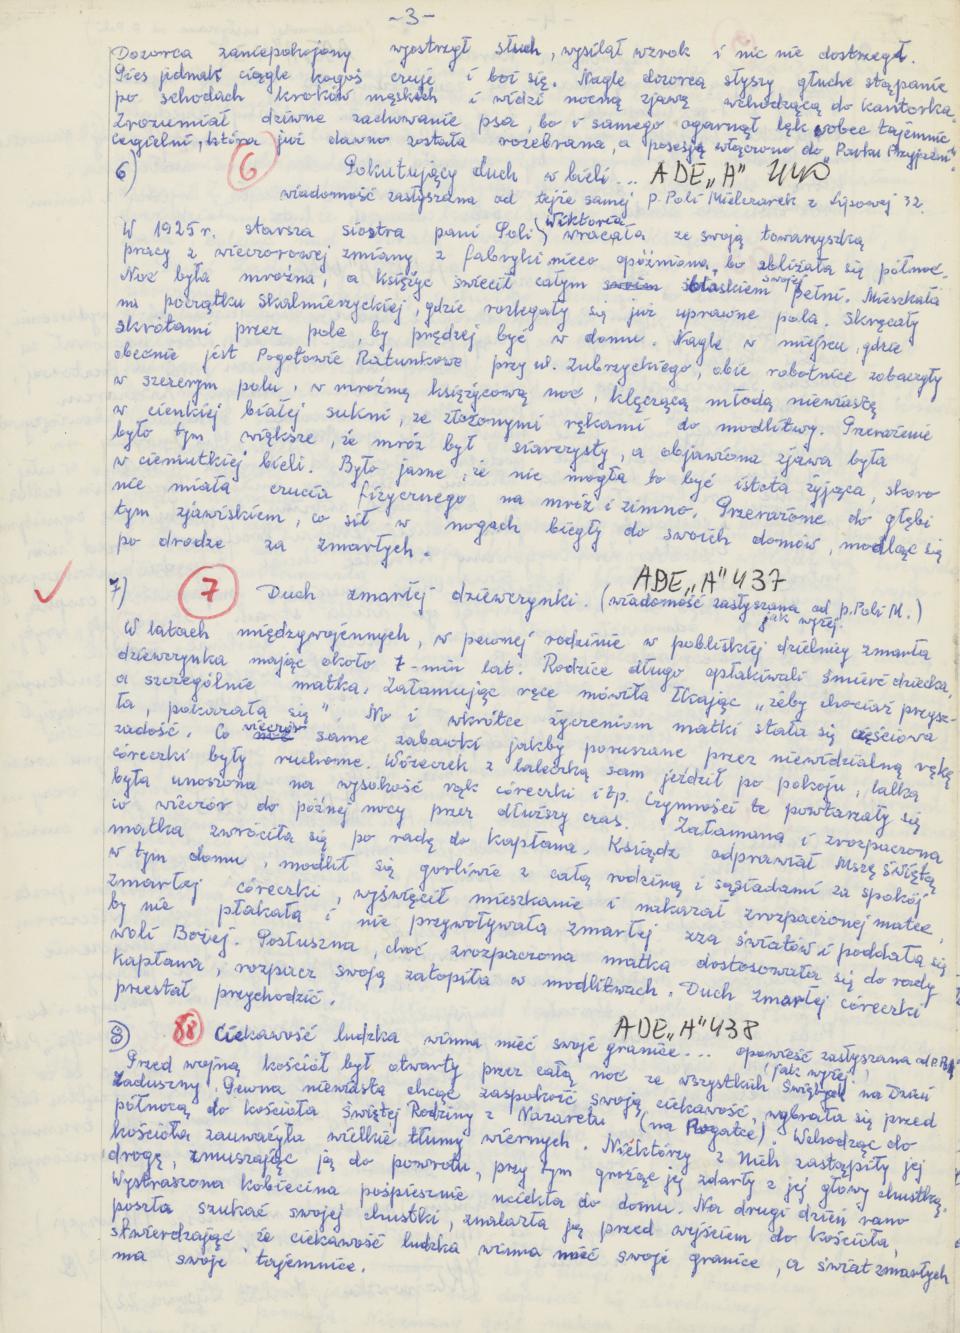 -3-
Dozorca zaniepokojony wyostrzył słuch, wysilał wzrok i nic nie dostrzegł.
Pies jednak ciągle kogoś czuje i boi się. Nagle dozorca słyszy głuche stąpanie
po schodach kroków męskich i widzi nocną zjawę wchodzącą do kantorka.
Zrozumiał dziwne zachowanie psa, bo i samego ogarnął lęk wobec tajemnic
cegielni, która już dawno została rozebrana, a posesję włączono do "Parku Przyjaźni".
6) 6 Pokutujący duch w bieli... ADE "A" 440
wiadomość zasłyszana od tejże samej p. Poli Mielczarek z Lipowej 32.
W 1925 r. starsza siostra pani Poli Wiktoria wracała ze swoją towarzyszką
pracy z wieczorowej zmiany z fabryki nieco opóźniona, bo zbliżała się północ.
Noc była mroźna, a księżyc świecił całym swoim blaskiem swojej pełni. Mieszkała
na początku Skalmierzyckiej, gdzie rozlegały się już uprawne pola. Skręcały
skrótami przez pola, by prędzej być w domu. Nagle w miejscu, gdzie
obecnie jest Pogotowie Ratunkowe przy ul. Zubrzyckiego, obie robotnice zobaczyły
w szczerym polu, w mroźną księżycową noc, klęczącą młodą niewiastę
w cienkiej białej sukni, ze złożonymi rękami do modlitwy. Przerażenie
było tym większe, że mróz był siarczysty, a objawiona zjawa była
w cieniutkiej bieli. Było jasne, że nie mogła to być istota żyjąca, skoro
nie miała czucia fizycznego na mróz i zimno. Przerażone do głębi
tym zjawiskiem, co sił w nogach biegły do swoich domów, modląc się
po drodze za zmarłych.
ADE "A" 437
7) 7 Duch zmarłej dziewczynki. (wiadomość zasłyszana od p. Poli M.)
jak wyżej.
W latach międzywojennych, w pewnej rodzinie w pobliskiej dzielnicy zmarła
dziewczynka mając około 7-miu lat. Rodzice długo opłakiwali śmierć dziecka,
a szczególnie matka. Załamując ręce mówiła łkając "żeby chociaż przysz-
ła, pokazała się". No i wkrótce życzeniom matki stała się częściowa
zadość. Co wieczór same zabawki jakby poruszane przez niewidzialną rękę
córeczki były ruchome. Wózeczek z laleczką sam jeździł po pokoju, lalka
była unoszona na wysokość rąk córeczki itp. Czynności te powtarzały się
co wieczór do późnej nocy przez dłuższy czas. Załamana i zrozpaczona
matka zwróciła się po radę do kapłana. Ksiądz odprawiał Mszę Świętą
w tym domu, modlił się gorliwie z całą rodziną i sąsiadami za spokój
zmarłej córeczki, wyświęcił mieszkanie i nakazał zrozpaczonej matce,
by nie płakała i nie przywoływała zmarłej zza światów i poddała się
woli Bożej. Posłuszna, choć zrozpaczona matka dostosowała się do rady
kapłana, rozpacz swoją zatopiła w modlitwach. Duch zmarłej córeczki
przestał przychodzić.
ADE "A" 438
8) 8 Ciekawość ludzka winna mieć swoje granice... opowieść zasłyszana od p. Poli
(jak wyżej.)
Przed wojną kościół był otwarty przez całą noc ze Wszystkich Świętych na Dzień
Zaduszny. Pewna niewiasta chcąc zaspokoić swoją ciekawość, wybrała się przed
północą do kościoła Świętej Rodziny z Nazaretu (na Rogatce). Wchodząc do
kościoła zauważyła wielkie tłumy wiernych. Niektórzy z Nich zastąpiły jej
drogę, zmuszając ją do powrotu, przy tym grożąc jej zdarły z jej głowy chustkę.
Wystraszona kobiecina pośpiesznie uciekła do domu. Na drugi dzień rano
poszła szukać swojej chustki, znalazła ją przed wejściem do kościoła,
stwierdzając że ciekawość ludzka winna mieć swoje granice, a świat zmarłych
ma swoje tajemnice.